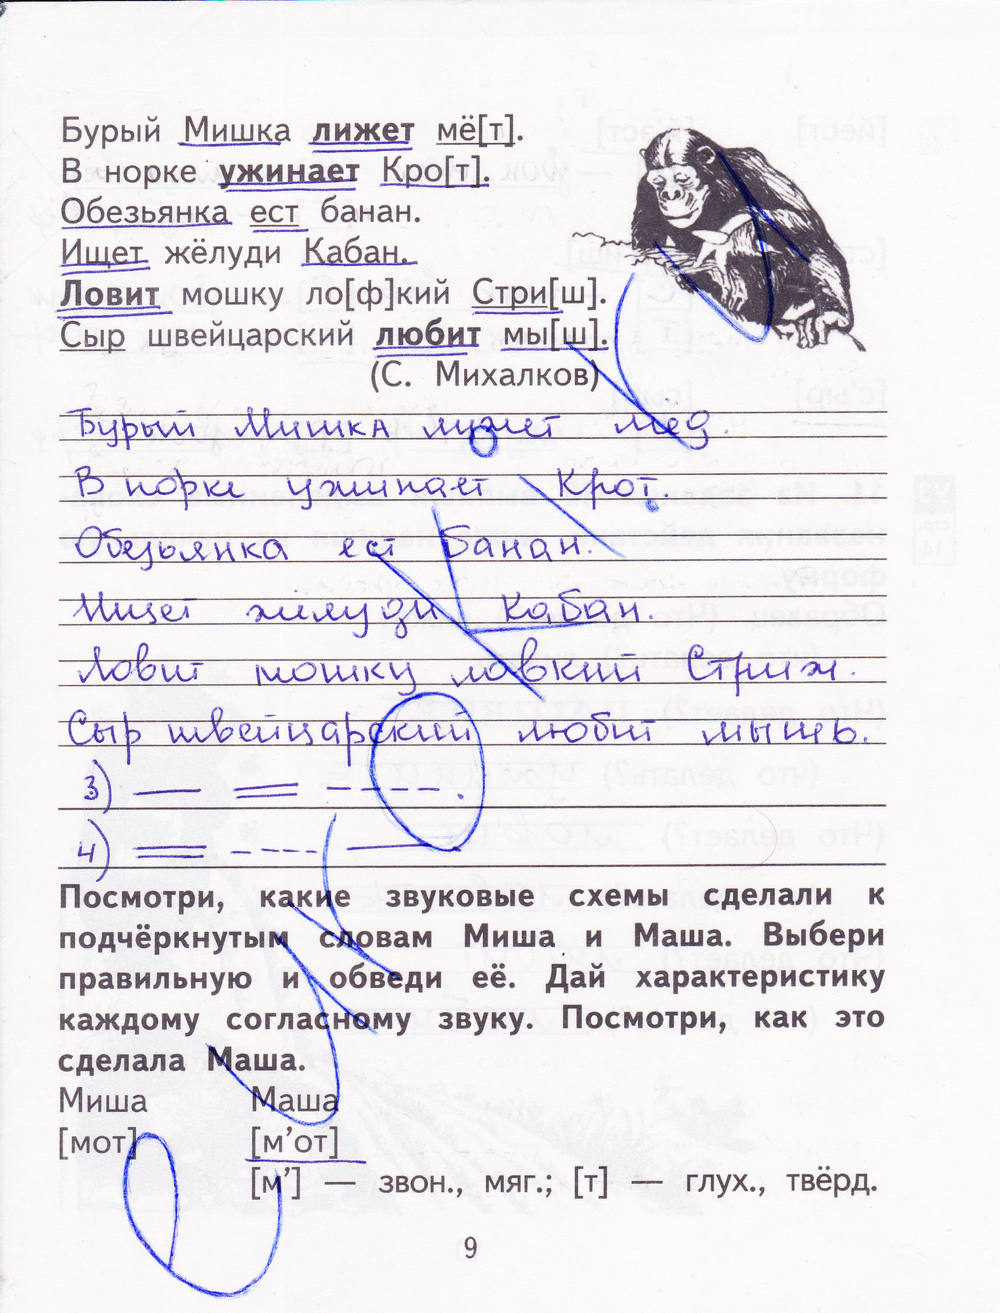 Бурый Мишка лижет мё[т].
В норке ужинает Кро[т].
Обезьянка ест банан.
Ищет жёлуди Кабан.
Ловит мошку ло[ф]кий Стри[ш].
Сыр швейцарский любит мы[ш].
(С. Михалков)
Бурый Мишка лижет мёд.
В норке ужинает Крот.
Обезьянка ест банан.
Ищет жёлуди Кабан.
Ловит мошку ловкий Стриж.
Сыр швейцарский любит мышь.
3)
4)
Посмотри, какие звуковые схемы сделали к
подчёркнутым словам Миша и Маша. Выбери
правильную и обведи её. Дай характеристику
каждому согласному звуку. Посмотри, как это
сделала Маша.
Миша Маша
[мот] [м’от]
[м’] — звон., мяг.; [т] — глух., твёрд.
9